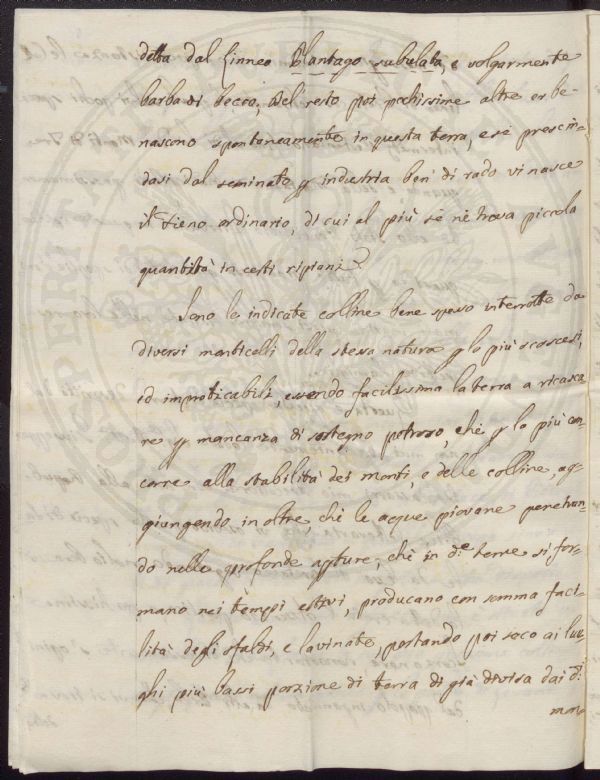 detta dal Linneo Plantago subulata, e volgarmente
barba di becco; del resto poi pochissime altre erbe
nascono spontaneamente in questa terra, e se prescin-
dasi dal seminato p industria ben di rado vi nasce
il fieno ordinario, di cui al più se ne trova piccola
quantità in certi ripiani.
Sono le indicate colline bene spesso interrotte da
diversi monticelli della stessa natura p lo più scoscesi,
ed impraticabili, essendo facilissima la terra a ricasca-
re p mancanza di sostegno petroso, che p lo più con-
corre alla stabilità dei monti, e delle colline, ag-
giungendo inoltre, che le acque piovane penetran-
do nelle profonde apture, che in de terre si for-
mano nei tempi estivi, producano con somma faci-
lità degli sfaldi, e lavinate, portando poi seco ai luo-
ghi più bassi porzione di terra di già divisa dai di
mon-